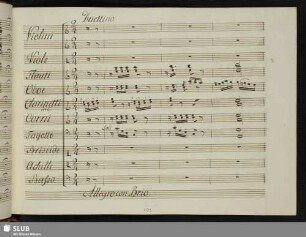 Duettino
Violini
Viole
Flauti
Oboe
Clarinetti
Corni
Fagotti
Briseide
Achille
Basso
Allegro con Brio
SLUB